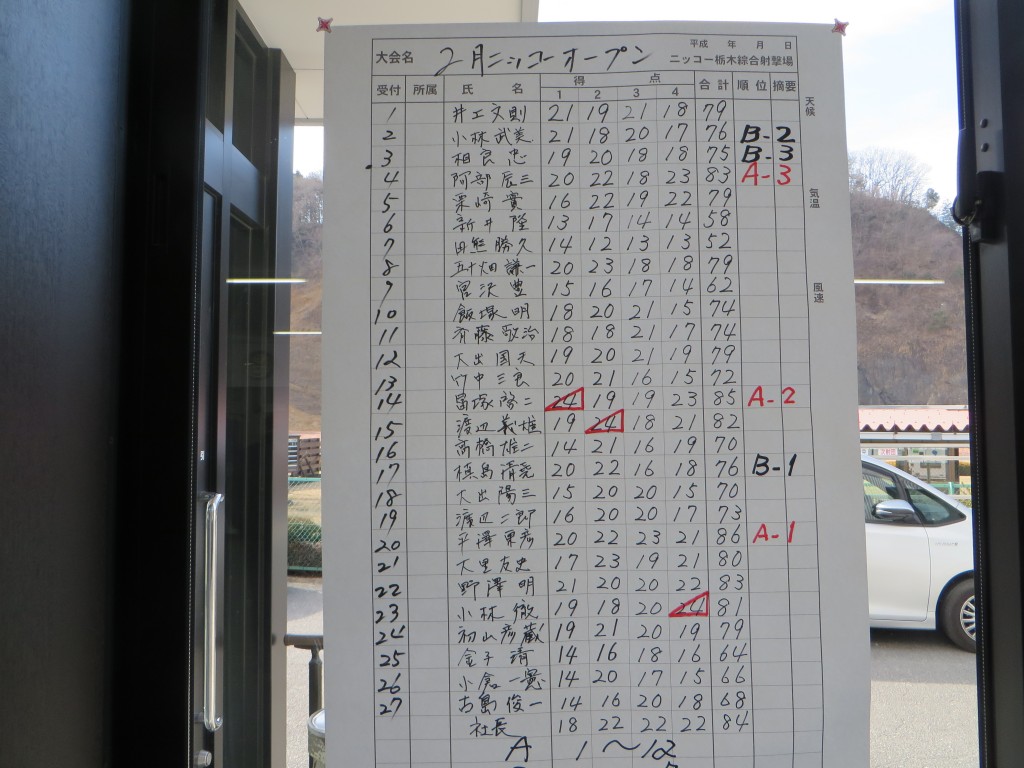 平成 年 月 日
大会名 2月ニッコーオープン ニッコー栃木綜合射撃場
受付 所属 氏 名 得 点 合計 順位 摘要
1 2 3 4
天候
気温
風速
1 井工文則 21 19 21 18 79
2 小林武美 21 18 20 17 76 B-2
3 相良忠 19 20 18 18 75 B-3
4 阿部辰三 20 22 18 23 83 A-3
5 栗崎實 16 22 19 22 79
6 新井隆 13 17 14 14 58
7 田熊勝久 14 12 13 13 52
8 五十畑謙一 20 23 18 18 79
9 豊 15 16 17 14 62
10 飯塚明 18 20 21 15 74
11 斉藤敬治 18 18 21 17 74
12 大出国夫 19 20 21 19 79
13 竹中三良 20 21 16 15 72
14 塚 二 24 19 19 23 85 A-2
15 渡辺義雄 19 24 18 21 82
16 高橋雄二 14 21 16 19 70
17 島清 20 22 16 18 76 B-1
18 大出陽三 15 20 20 15 70
19 渡辺二郎 16 20 20 17 73
20 平澤 彦 20 22 23 21 86 A-1
21 大里友史 17 23 19 21 80
22 野澤明 21 20 20 22 83
23 小林徹 19 18 20 24 81
24 初山彦蔵 19 21 20 19 79
25 金子靖 14 16 18 16 64
26 小倉一 14 20 17 15 66
27 古島俊一 14 16 20 18 68
社長 18 22 22 22 84
A 1〜12